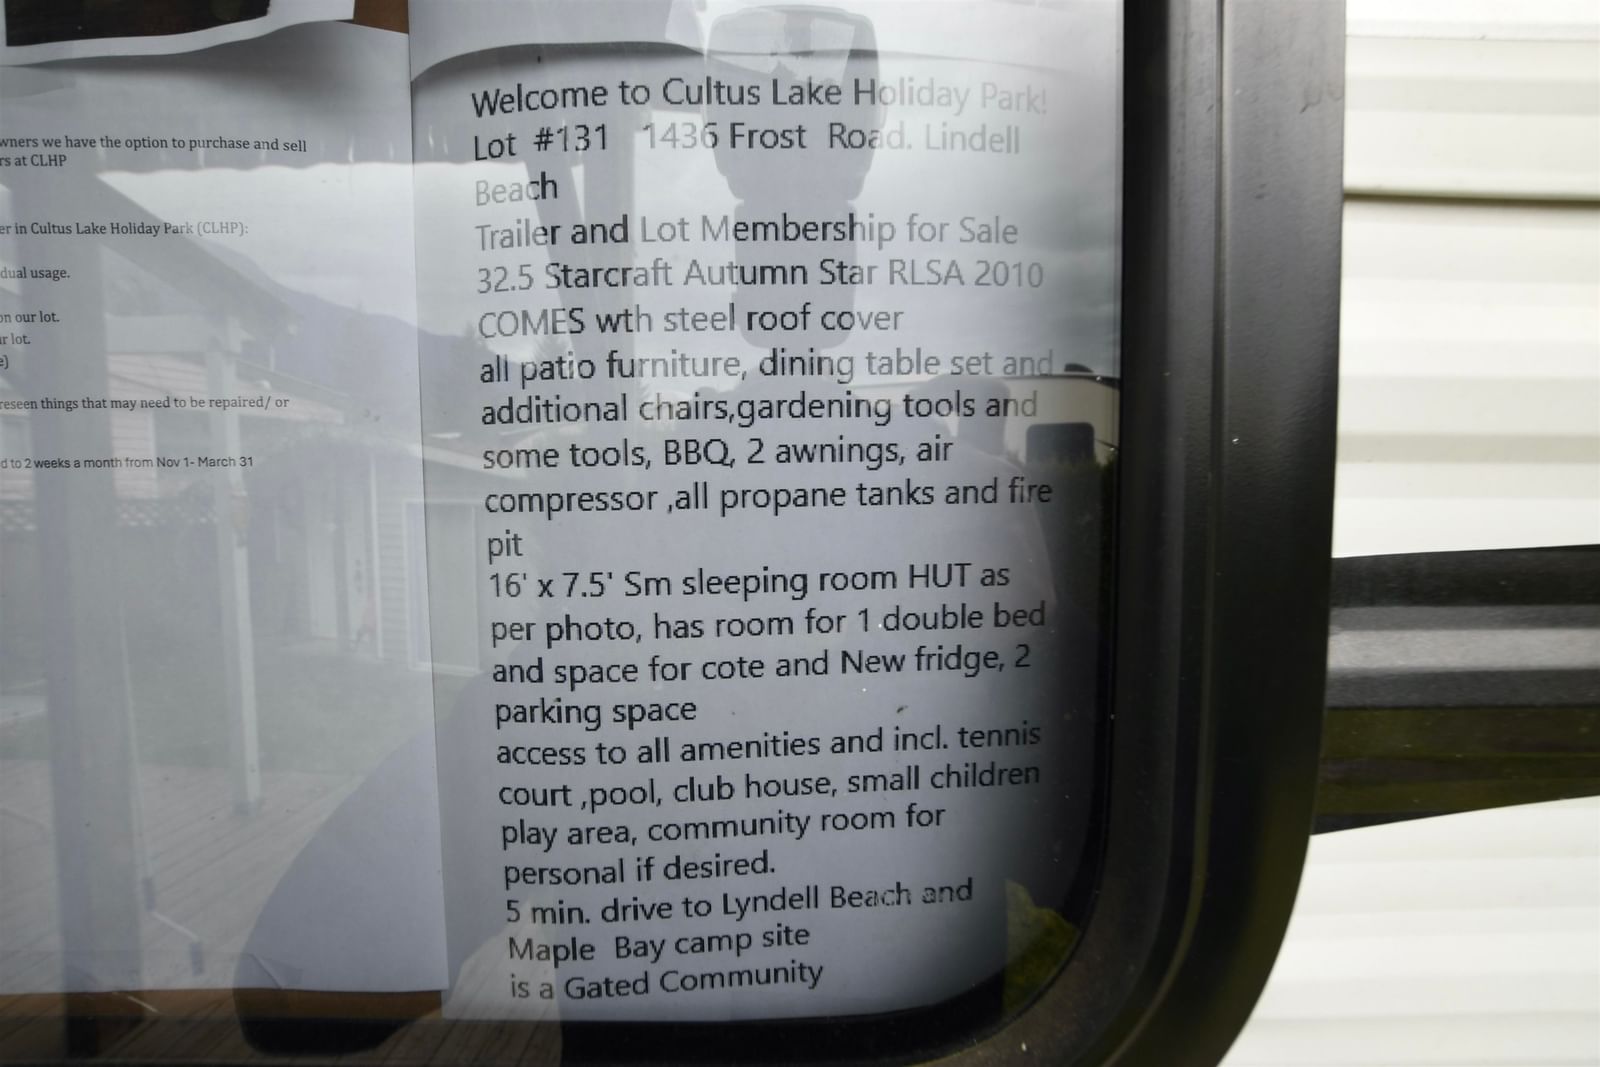 wners we have the option to purchase and sell
rs at CLHP
er in Cultus Lake Holiday Park (CLHP):
dual usage.
on our lot.
ur lot.
e)
reseen things that may need to be repaired/ or
d to 2 weeks a month from Nov 1- March 31
Welcome to Cultus Lake Holiday Park!
Lot #131 1436 Frost Road. Lindell
Beach
Trailer and Lot Membership for Sale
32.5 Starcraft Autumn Star RLSA 2010
COMES wth steel roof cover
all patio furniture, dining table set and
additional chairs,gardening tools and
some tools, BBQ, 2 awnings, air
compressor ,all propane tanks and fire
pit
16' x 7.5' Sm sleeping room HUT as
per photo, has room for 1 double bed
and space for cote and New fridge, 2
parking space
access to all amenities and incl. tennis
court ,pool, club house, small children
play area, community room for
personal if desired.
5 min. drive to Lyndell Beach and
Maple Bay camp site
is a Gated Community